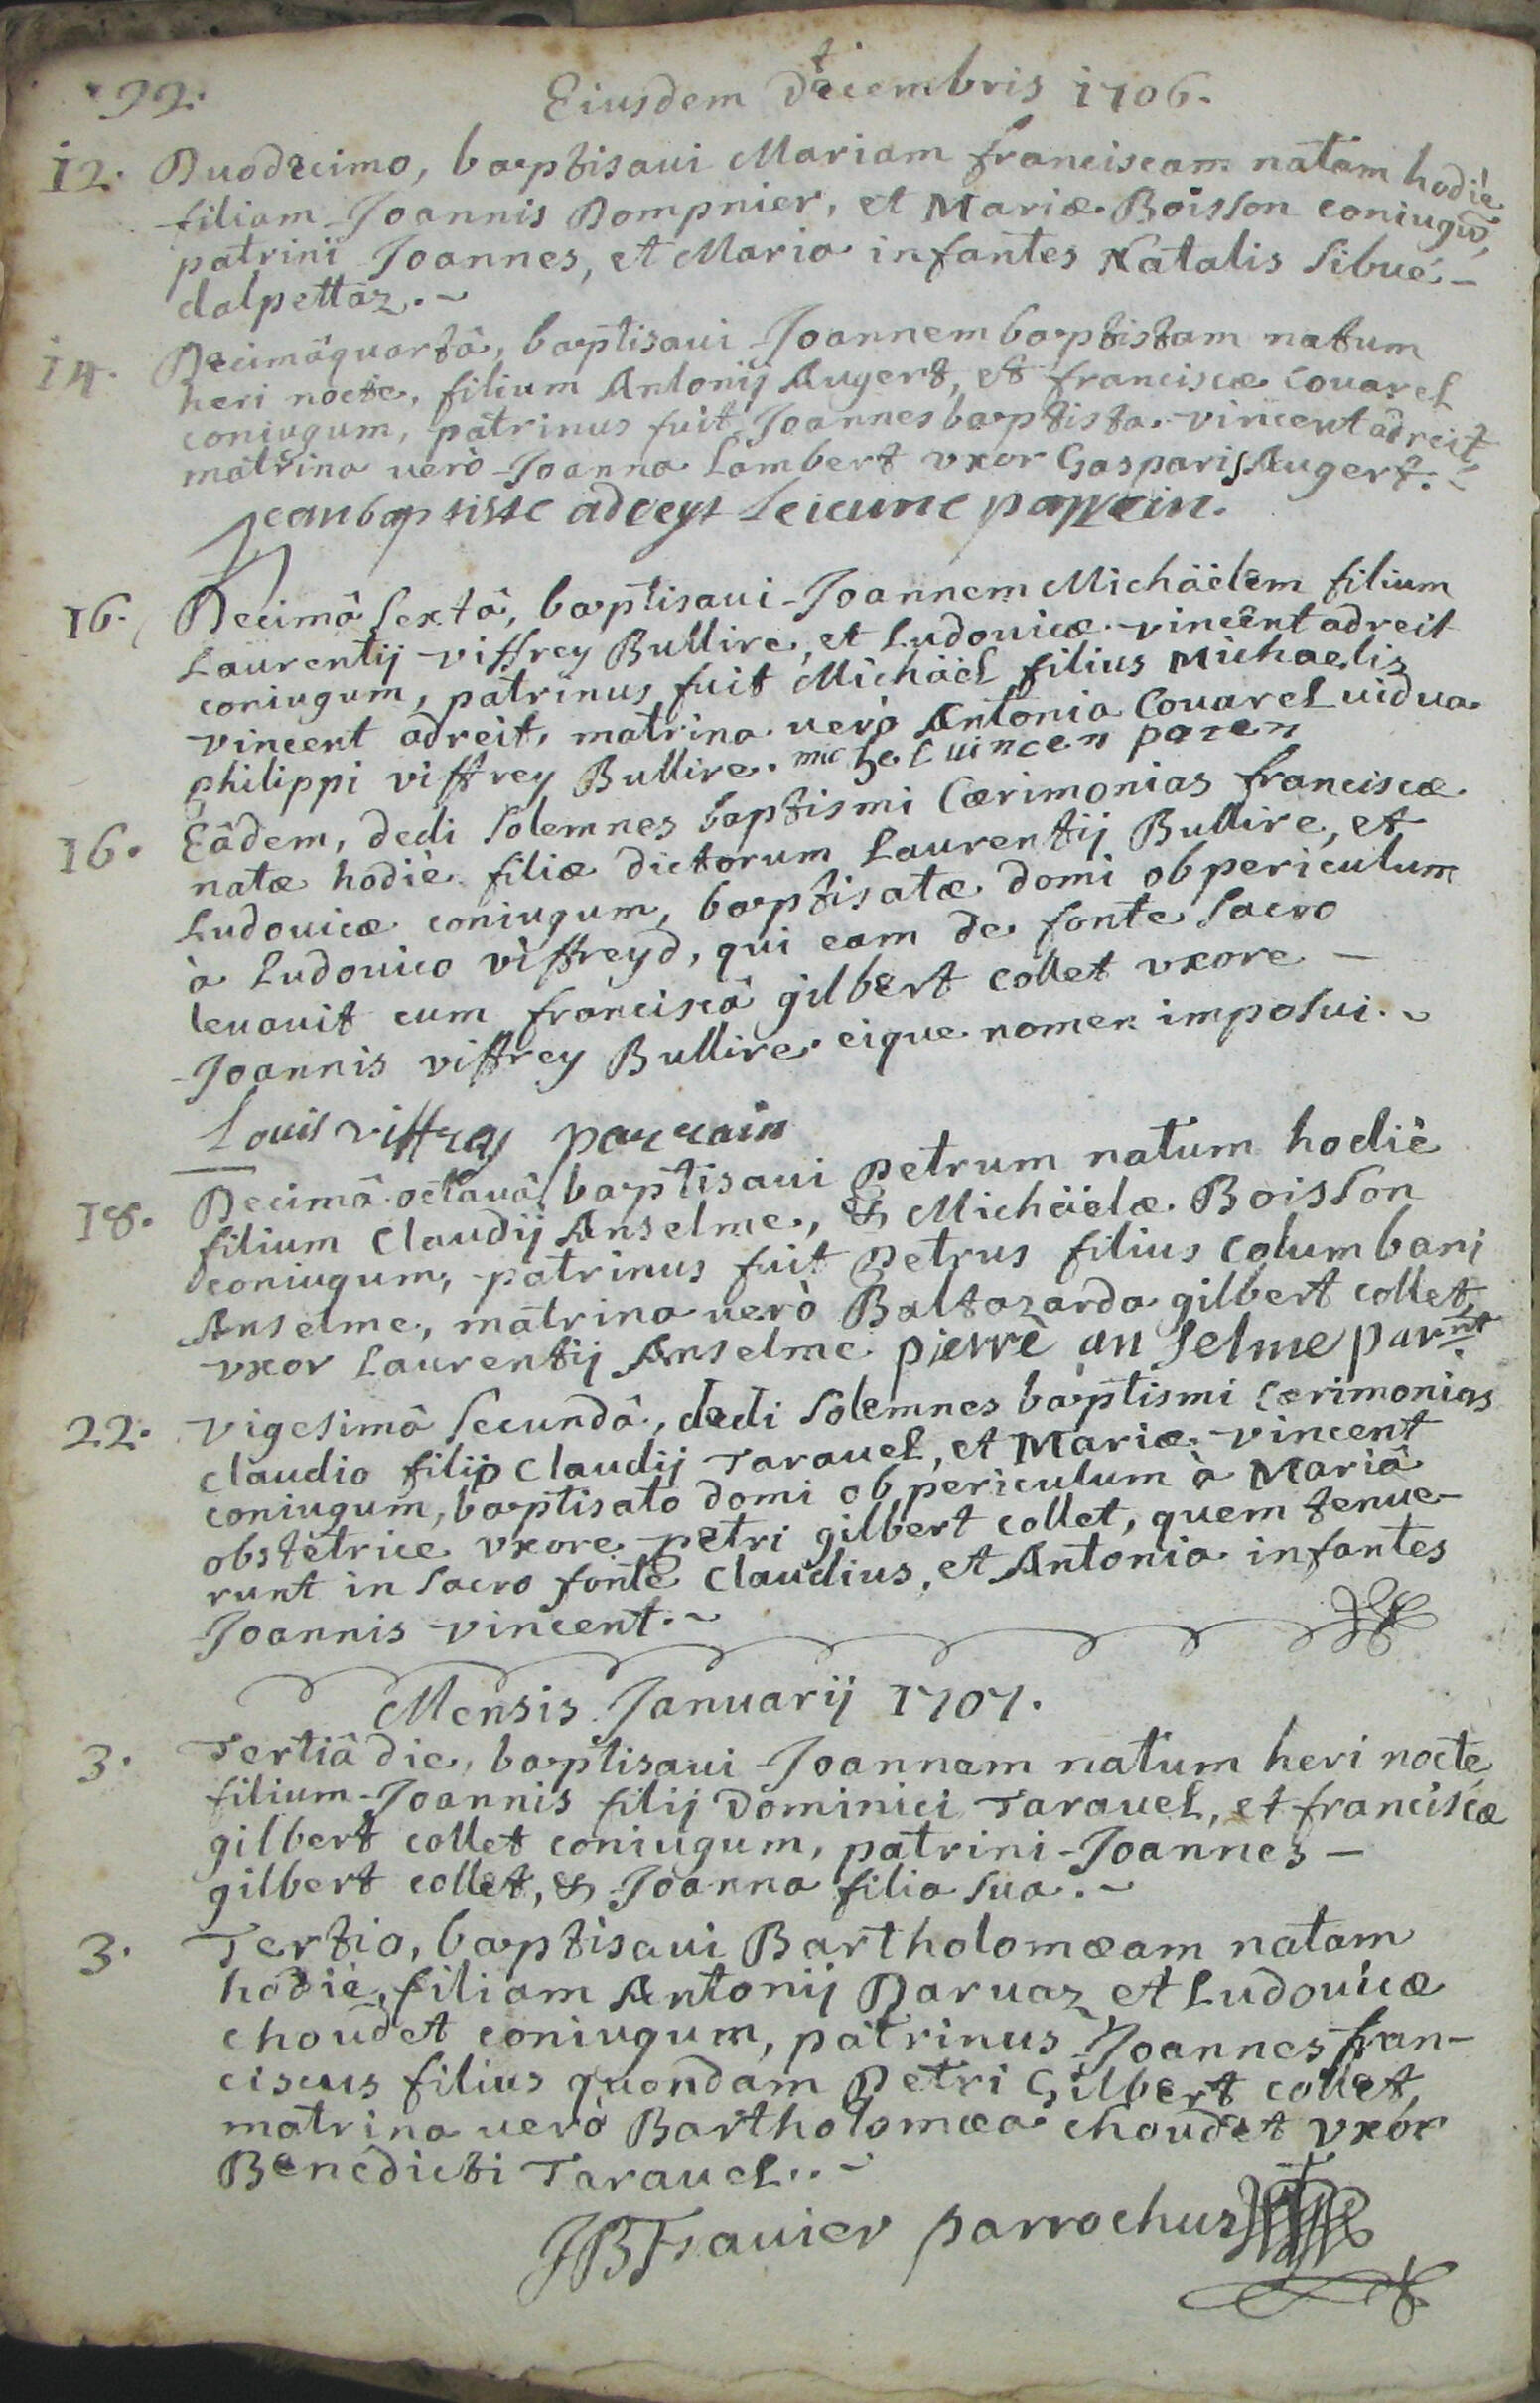 99.
Eiusdem Decembris 1706.
12. Duodecimo, baptisaui Mariam franciscam natam hodiè
filiam Joannis Dompnier, et Mariæ Boisson coniugũ,
patrini Joannes, et Maria infantes Natalis Sibué-
dalpettaz.~
14. Decimâquartâ, baptisaui Joannem baptistam natum
heri nocte, filium Antonij Augert, et franciscæ Couarel
coniugum, patrinus fuit Joannes baptista vincent adreit
matrina uerò Joanna Lambert vxor Gasparis Augert.~
Jean baptiste adreyt le ieune parrein.
16. Decimâ Sextâ, baptisaui Joannem Michäelem filium
Laurentij viffrey Bullire, et Ludouicæ vincent adreit
coniugum, patrinus fuit Michäel filius Michaelis
vincent adreit, matrina uerò Antonia Couarel uidua
philippi viffrey Bullire. michel uincen paren
16. Eâdem, dedi Solemnes baptismi Cærimonias franciscæ
natæ hodiè filiæ dictorum Laurentij Bullire, et
Ludouicæ coniugum, baptisatæ domi ob periculum
à Ludouico viffreyd, qui eam de fonte Sacro
leuauit cum franciscâ gilbert collet vxore -
Joannis viffrey Bullire eique nomen imposui.~
Louis viffrey parrain
18. Decimâ octauâ baptisaui petrum natum hodiè
filium Claudij Anselme, & Michäelæ Boisson
coniugum, patrinus fuit petrus filius Columbani
Anselme, matrina uerò Baltazarda gilbert collet,
vxor Laurentij Anselme pierre an selme parnt
22. vigesimâ Secundâ, dedi Solemnes baptismi Cærimonias
Claudio filio Claudij Tarauel, et Mariæ vincent
coniugum, baptisato domi ob periculum à Mariâ
obstetrice vxore petri gilbert collet, quem tenue-
runt in Sacro fonte Claudius, et Antonia infantes
Joannis vincent.~
Mensis Januarij 1707.
3. Tertiâ die, baptisaui Joannem natum heri nocte
filium Joannis filij Dominici Tarauel, et franciscæ
gilbert collet coniugum, patrini Joannes -
gilbert collet, & Joanna filia Sua.~
3. Tertio, baptisaui Bartholomæam natam
hodiè, filiam Antonij Daruaz et Ludouicæ
choudet coniugum, patrinus Joannes fran-
ciscus filius quondam Petri Gilbert collet,
matrina uerò Bartholomæa choudet vxor
Benedicti Tarauel.~
JB Frauier parrochus